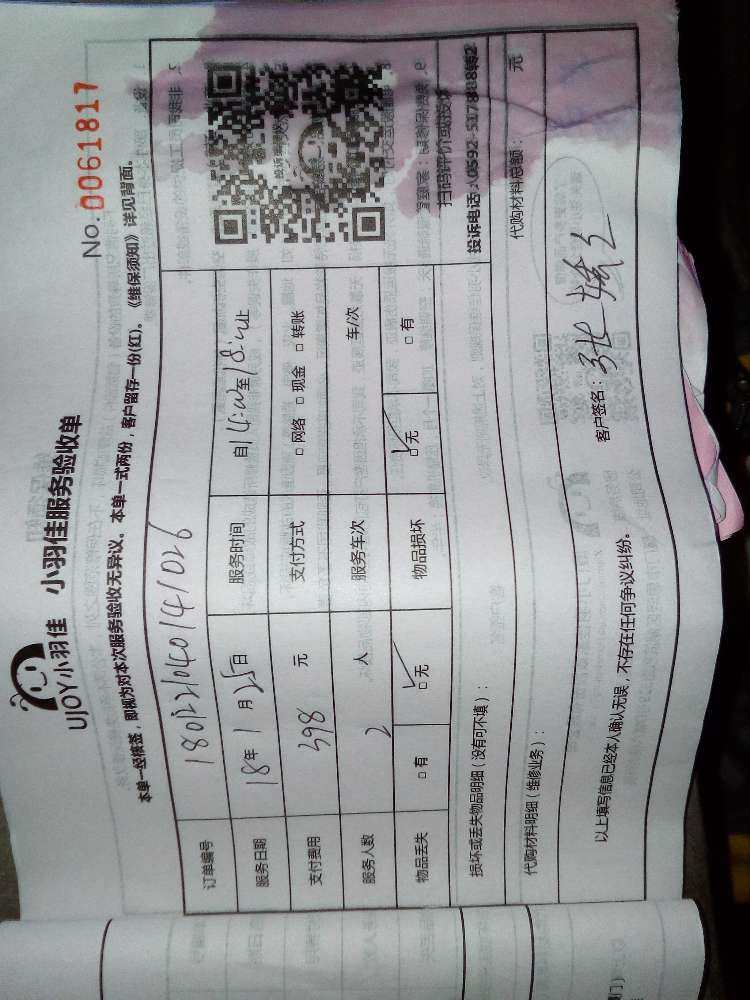 No.0061817
UJOY小羽佳 小羽佳服务验收单
本单一经核签，即视为对本次服务验收无异议。本单一式两份，客户留存一份(红)。《维保须知》详见背面。
订单编号 1801221040141026
服务日期 18年 1月25日 服务时间 自14:00至18:00止
支付费用 398 元 支付方式 □网络 □现金 □转账
服务人数 2 人 服务车次 车/次
物品丢失 □有 □无 物品损坏 □无 □有
扫码评价或投诉
投诉电话：0592-5178888转2
损坏或丢失物品明细（没有可不填）：
代购材料明细（维修业务）： 代购材料总额： 元
以上填写信息已经本人确认无误，不存在任何争议纠纷。
客户签名：